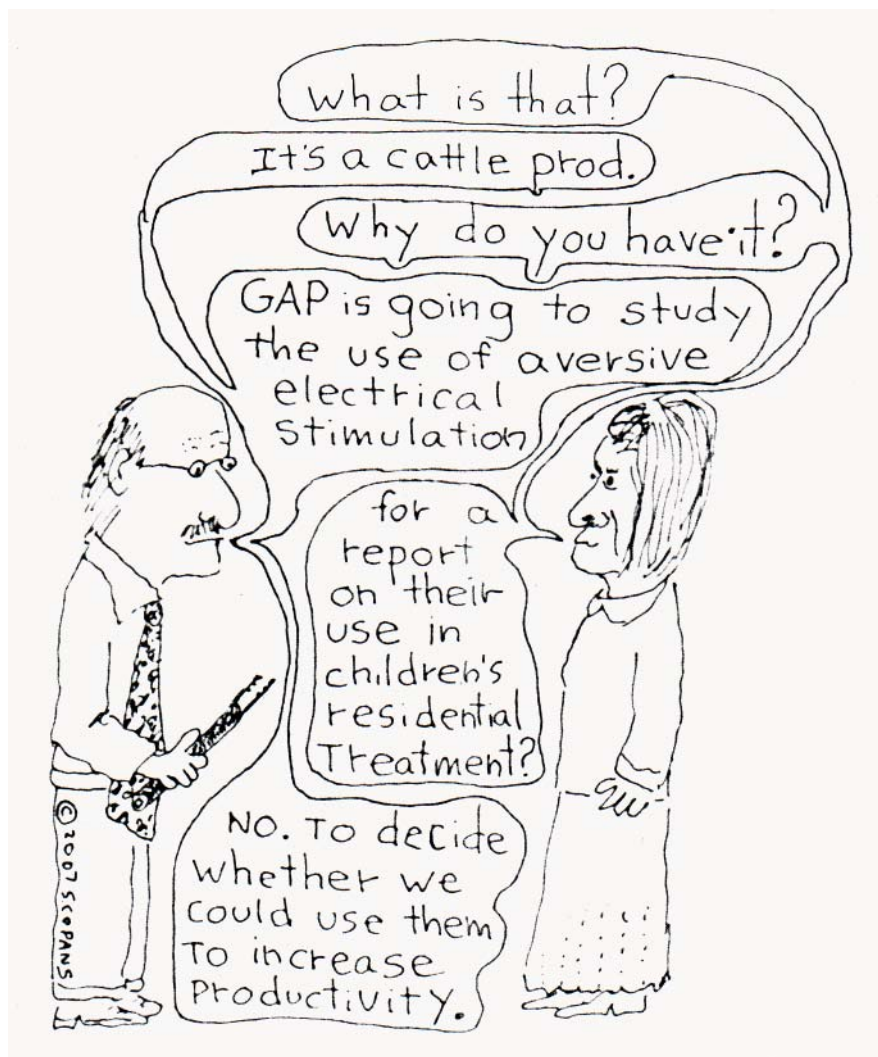 What is that?
It's a cattle prod.
Why do you have it?
GAP is going to study
the use of aversive
electrical
stimulation
for a
report
on their
use in
children's
residential
Treatment?
NO. TO decide
whether we
could use them
To increase
Productivity.
© 2007 SCOPANS